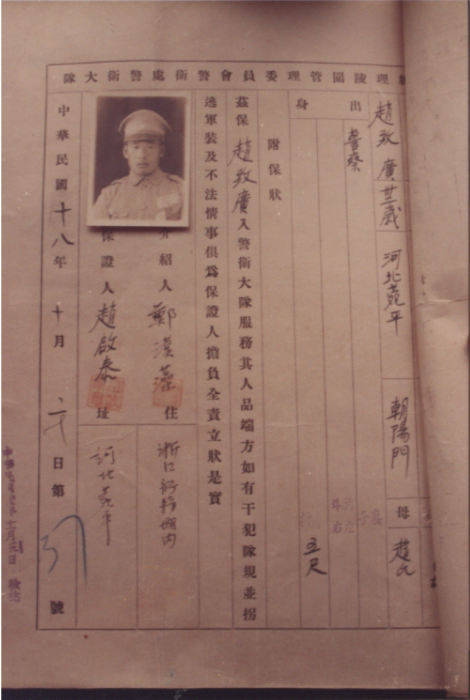 理陵園管理委員會警衛處警衛大隊
趙致廣 廿三歲 河北宛平 朝陽門 母 趙氏
出身
警察 五尺
附保狀
茲保趙致廣入警衛大隊服務其人品端方如有干犯隊規並拐
逃軍裝及不法情事俱爲保證人擔負全責立狀是實
介紹人鄭漢藻 住
保證人趙啟泰 址 河北宛平
中華民國十八年十月 日第 號